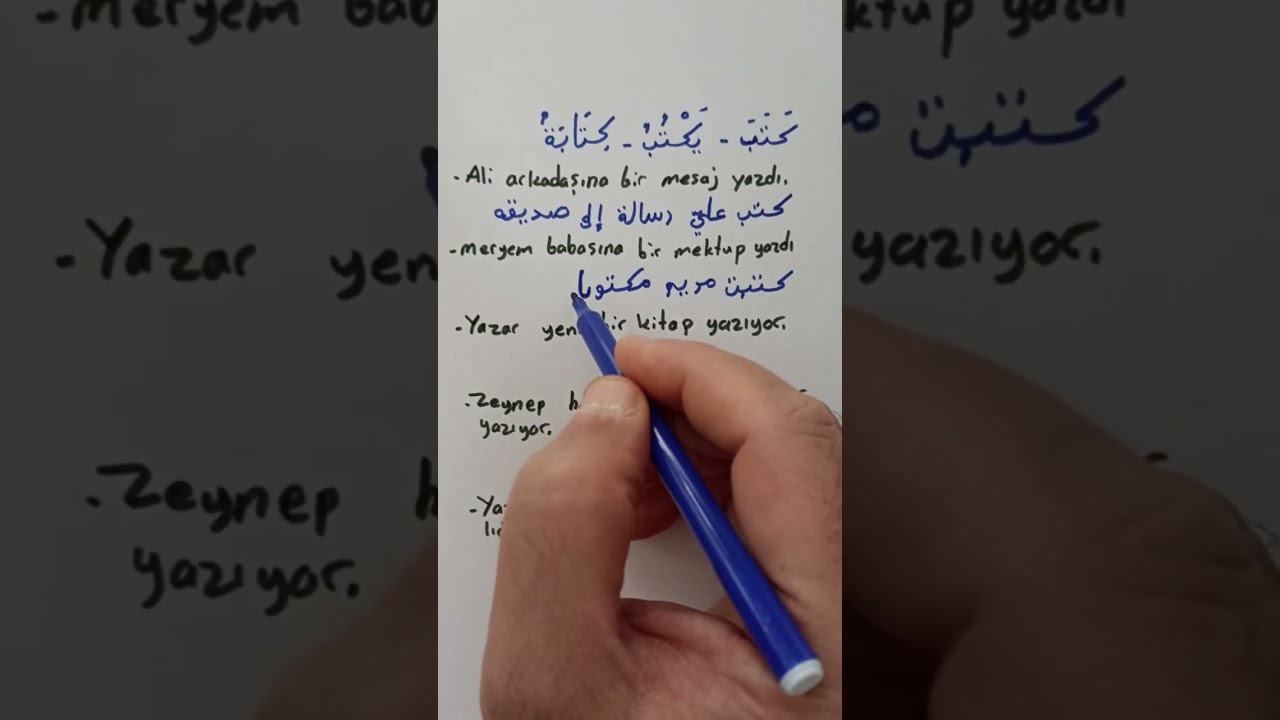 كَتَبَ - يَكْتُبُ - كِتَابَةٌ
- Ali arkadaşına bir mesaj yazdı.
كتب علي رسالة إلى صديقه
- meryem babasına bir mektup yazdı
كتبت مريم مكتوبا
- Yazar bir kitap yazıyor.
- Zeynep
yazıyor.